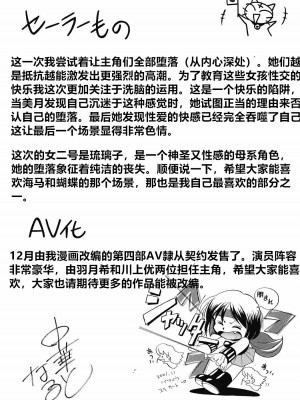 セーラーもの
这一次我尝试着让主角们全部堕落（从内心深处）。她们越
是抵抗越能激发出更强烈的高潮。为了教育这些女孩性交的
快乐我这次更加关注于洗脑的运用。这是一个快乐的陷阱，
当美月发现自己沉迷于这种感觉时，她试图正当的理由来否
认自己的堕落。最后她发现性爱的快感已经完全吞噬了自己
这让最后一个场景显得非常色情。
这次的女二号是琉璃子，是一个神圣又性感的母系角色，
她的堕落象征着纯洁的丧失。顺便说一下，希望大家能喜
欢海马和蝴蝶的那个场景，那也是我自己最喜欢的部分之
一。
AV化
12月由我漫画改编的第四部AV隷从契约发售了。演员阵容
非常豪华，由羽月希和川上优两位担任主角，希望大家能喜
欢，大家也请期待更多的作品能被改编。